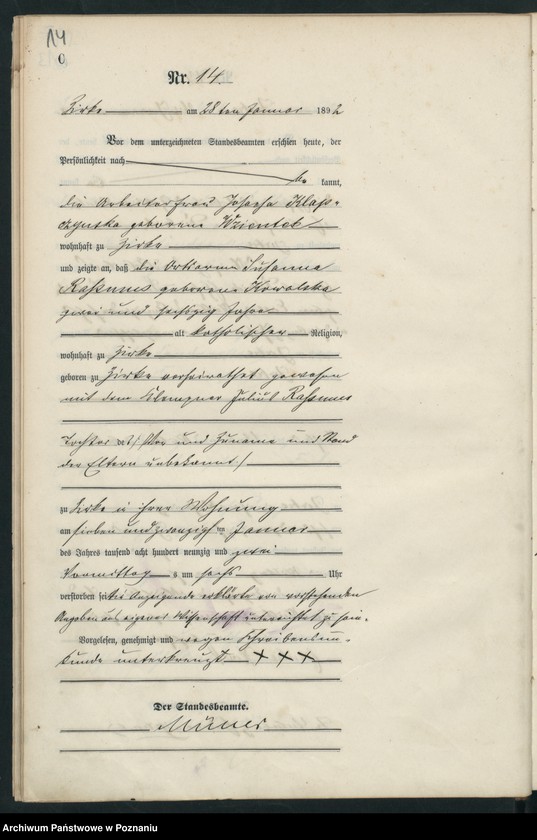 14
Nr. 14.
Zirke am 28ten Januar 1892
Vor dem unterzeichneten Standesbeamten erschien heute, der
Persönlichkeit nach
be kannt,
die Arbeiterfrau Josepha
geborene Wzientek
wohnhaft zu Zirke
und zeigte an, daß die Ortsarme Susanna
geborene Kowalska
zwei und sechszig Jahre
alt katholischer Religion,
wohnhaft zu Zirke
geboren zu Zirke verheirathet gewesen
mit dem Klempner Julius
Tochter des / Vor und Zuname und Stand
der Eltern unbekannt /
zu Zirke in ihrer Wohnung
am sieben und zwanzigsten Januar
des Jahres tausend acht hundert neunzig und zwei
Vormittag s um sechs Uhr
verstorben sei. Die Anzeigende erklärte von vorstehenden
Angaben aus eigener Wissenschaft unterrichtet zu sein.
Vorgelesen, genehmigt und wegen Schreibensun-
kunde unterkreuzt. + + +
Der Standesbeamte.
Archiwum Państwowe w Poznaniu